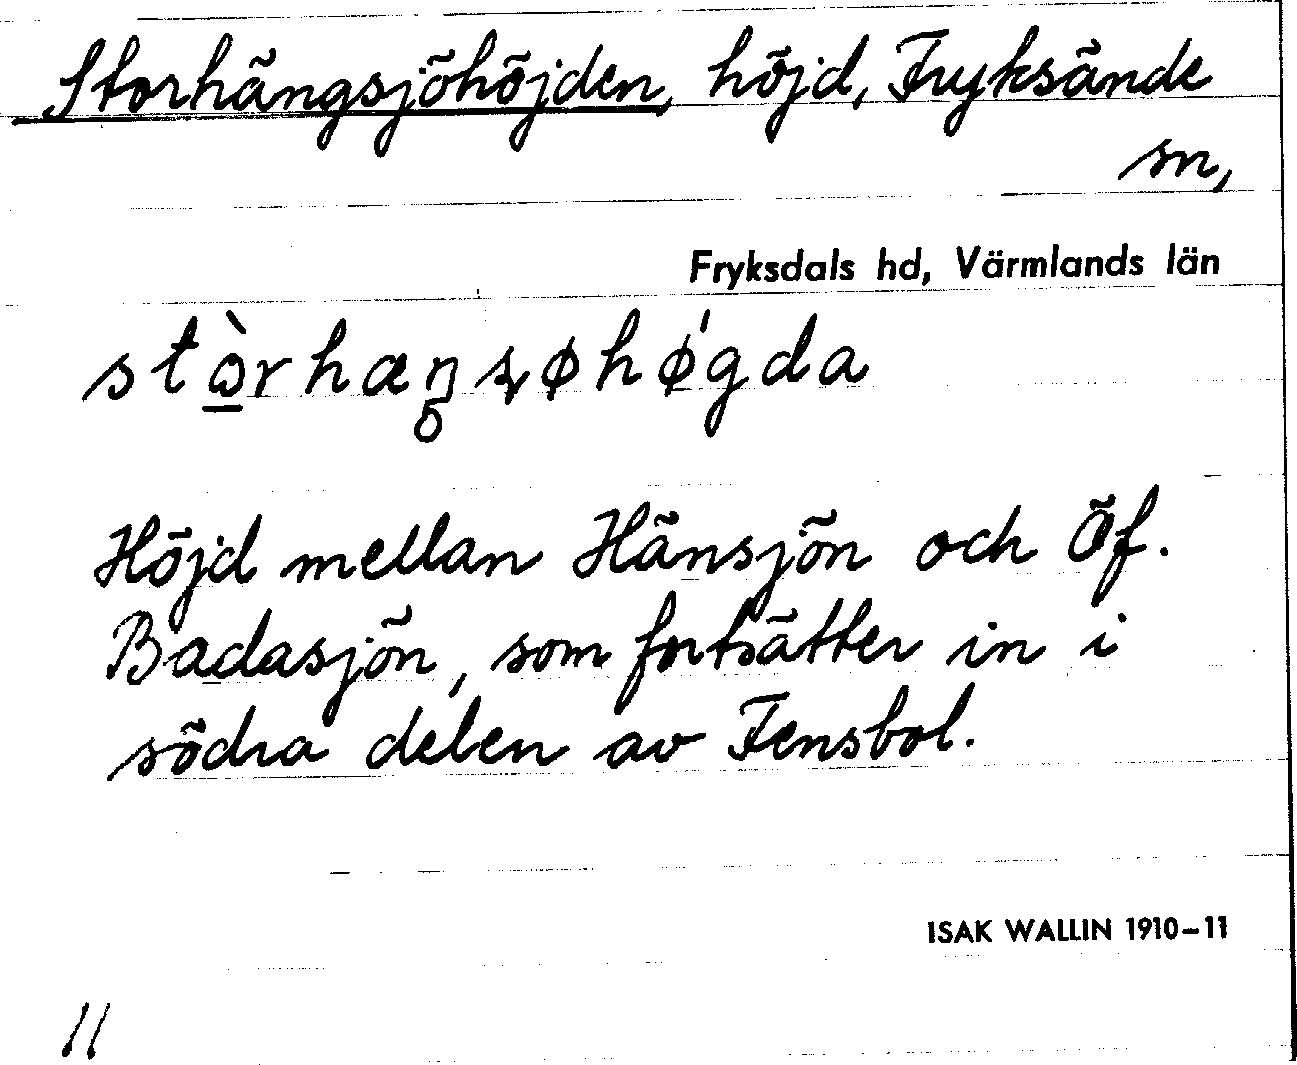 Storhängsjöhöjden, höjd, Fryksände
sn,
Fryksdals hd, Värmlands län
Höjd mellan Hänsjön och Öf.
Badasjön, som fortsätter in i
södra delen av Fensbol.
ISAK WALLIN 1910–11
11